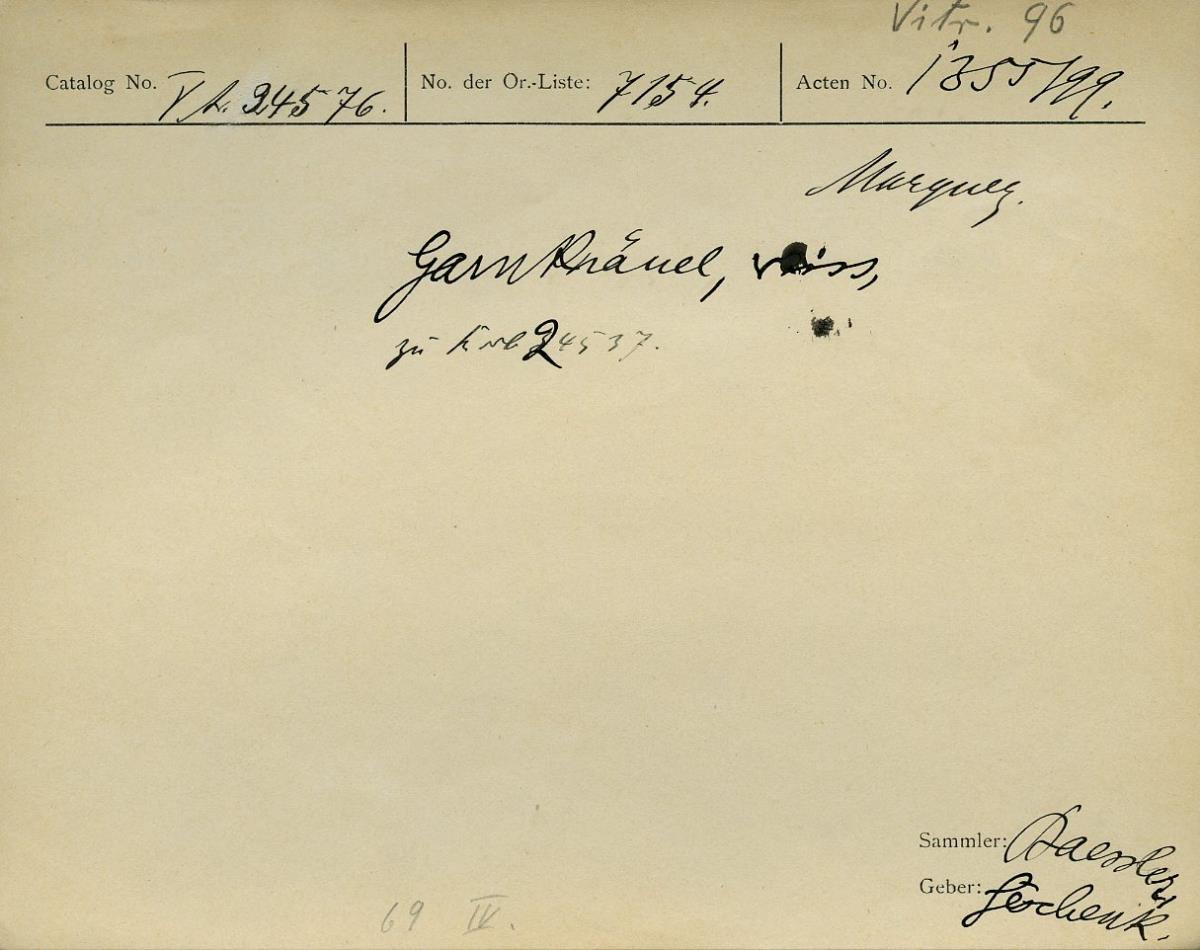 Vitr. 96
Catalog No. VA. 24576. No. der Or.-Liste: 7154. Acten No. 1355/99.
Marquez.
Garnknäuel, weiss,
zu Korb 24537.
Sammler: Baessler,
Geber: Geschenk.
69 IV.